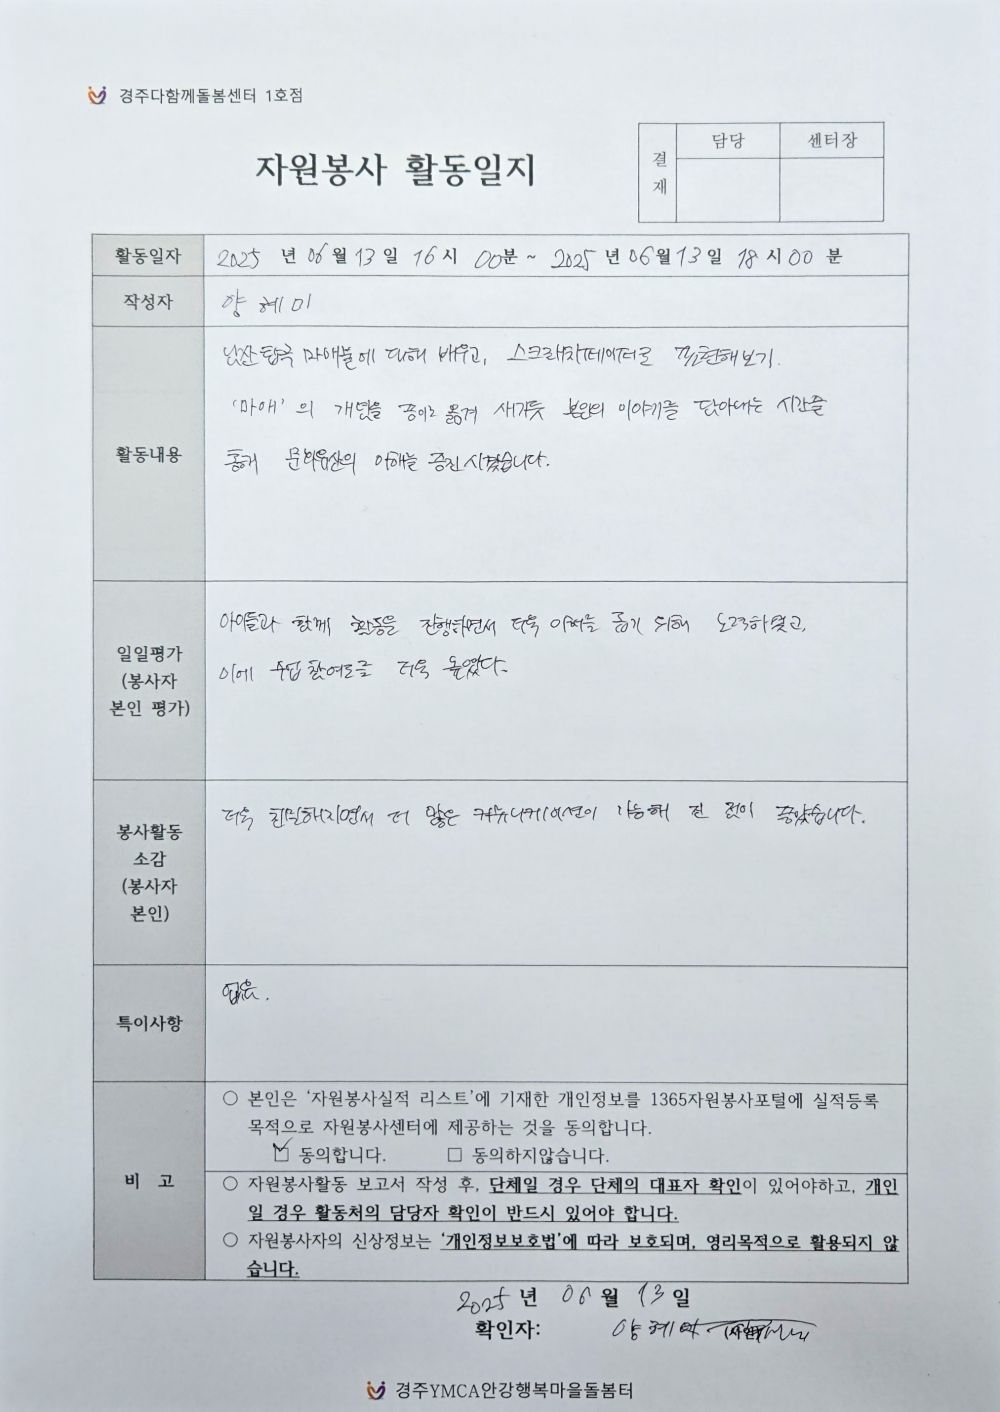 경주다함께돌봄센터 1호점
자원봉사 활동일지
결재
담당
센터장
활동일자
2025 년 06월 13일 16시 00분 ~ 2025 년 06월 13일 18시 00 분
작성자
양혜미
활동내용
남산 탑곡 마애불에 대해 배우고, 스크래치페이퍼로 표현해보기.
'마애'의 개념을 종이로 옮겨 새기듯 본인의 이야기를 담아내는 시간을
통해 문화유산의 이해를 증진시켰습니다.
일일평가
(봉사자
본인 평가)
아이들과 함께 활동을 진행하면서 더욱 이해를 돕기 위해 노력하였고,
이에 수업 참여도를 더욱 높였다.
봉사활동
소감
(봉사자
본인)
더욱 친밀해지면서 더 많은 커뮤니케이션이 가능해 진 것이 좋았습니다.
특이사항
없음.
비 고
○ 본인은 '자원봉사실적 리스트'에 기재한 개인정보를 1365자원봉사포털에 실적등록
목적으로 자원봉사센터에 제공하는 것을 동의합니다.
☑ 동의합니다. □ 동의하지않습니다.
○ 자원봉사활동 보고서 작성 후, 단체일 경우 단체의 대표자 확인이 있어야하고, 개인
일 경우 활동처의 담당자 확인이 반드시 있어야 합니다.
○ 자원봉사자의 신상정보는 '개인정보보호법'에 따라 보호되며, 영리목적으로 활용되지 않
습니다.
2025 년 06 월 13 일
확인자: 양혜미
경주YMCA안강행복마을돌봄터